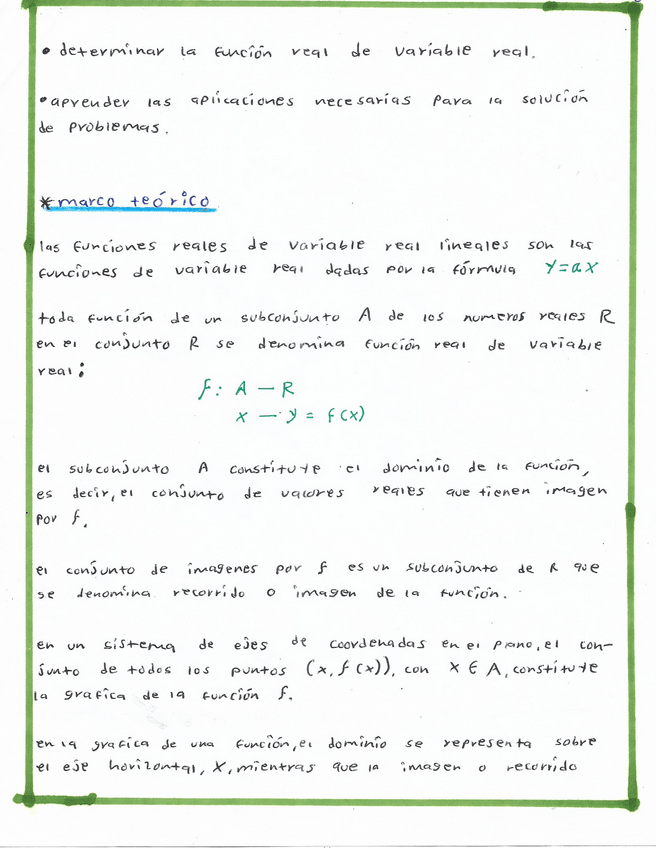 • determinar la función real de variable real.
• aprender las aplicaciones necesarias para la solución
de problemas.
* marco teórico
las funciones reales de variable real lineales son las
funciones de variable real dadas por la fórmula y=ax
toda función de un subconjunto A de los numeros reales R
en el conjunto R se denomina función real de variable
real:
f: A — R
x — y = f(x)
el subconjunto A constitute el dominio de la función,
es decir, el conjunto de valores reales que tienen imagen
por f.
el conjunto de imagenes por f es un subconjunto de R que
se denomina recorrido o imagen de la función.
en un sistema de ejes de coordenadas en el plano, el con-
junto de todos los puntos (x, f(x)), con x ∈ A, constitute
la grafica de la función f.
en la grafica de una función, el dominio se representa sobre
el eje horizontal, X, mientras que la imagen o recorrido